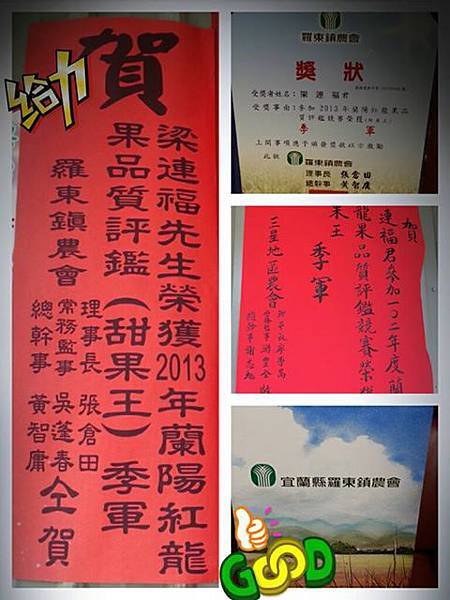 賀
给力
梁連福先生榮獲2013年蘭陽紅龍
果品質評鑑（甜果王）季軍
羅東鎮農會
理事長 張倉田
常務監事 吳蓬春
總幹事 黃智庸
仝賀
羅東鎮農會
獎狀
受獎者姓名：梁連福君
受獎事由：參加2013年蘭陽紅龍果品
質評鑑競賽榮獲
季軍
上開事項應予頒發獎狀以示激勵
此狀
羅東鎮農會
理事長 張倉田
總幹事 黃智庸
賀
連福君參加一〇二年度蘭
龍果品質評鑑競賽榮
果王 季軍
三星地區農會
宜蘭縣羅東鎮農會
GOOD